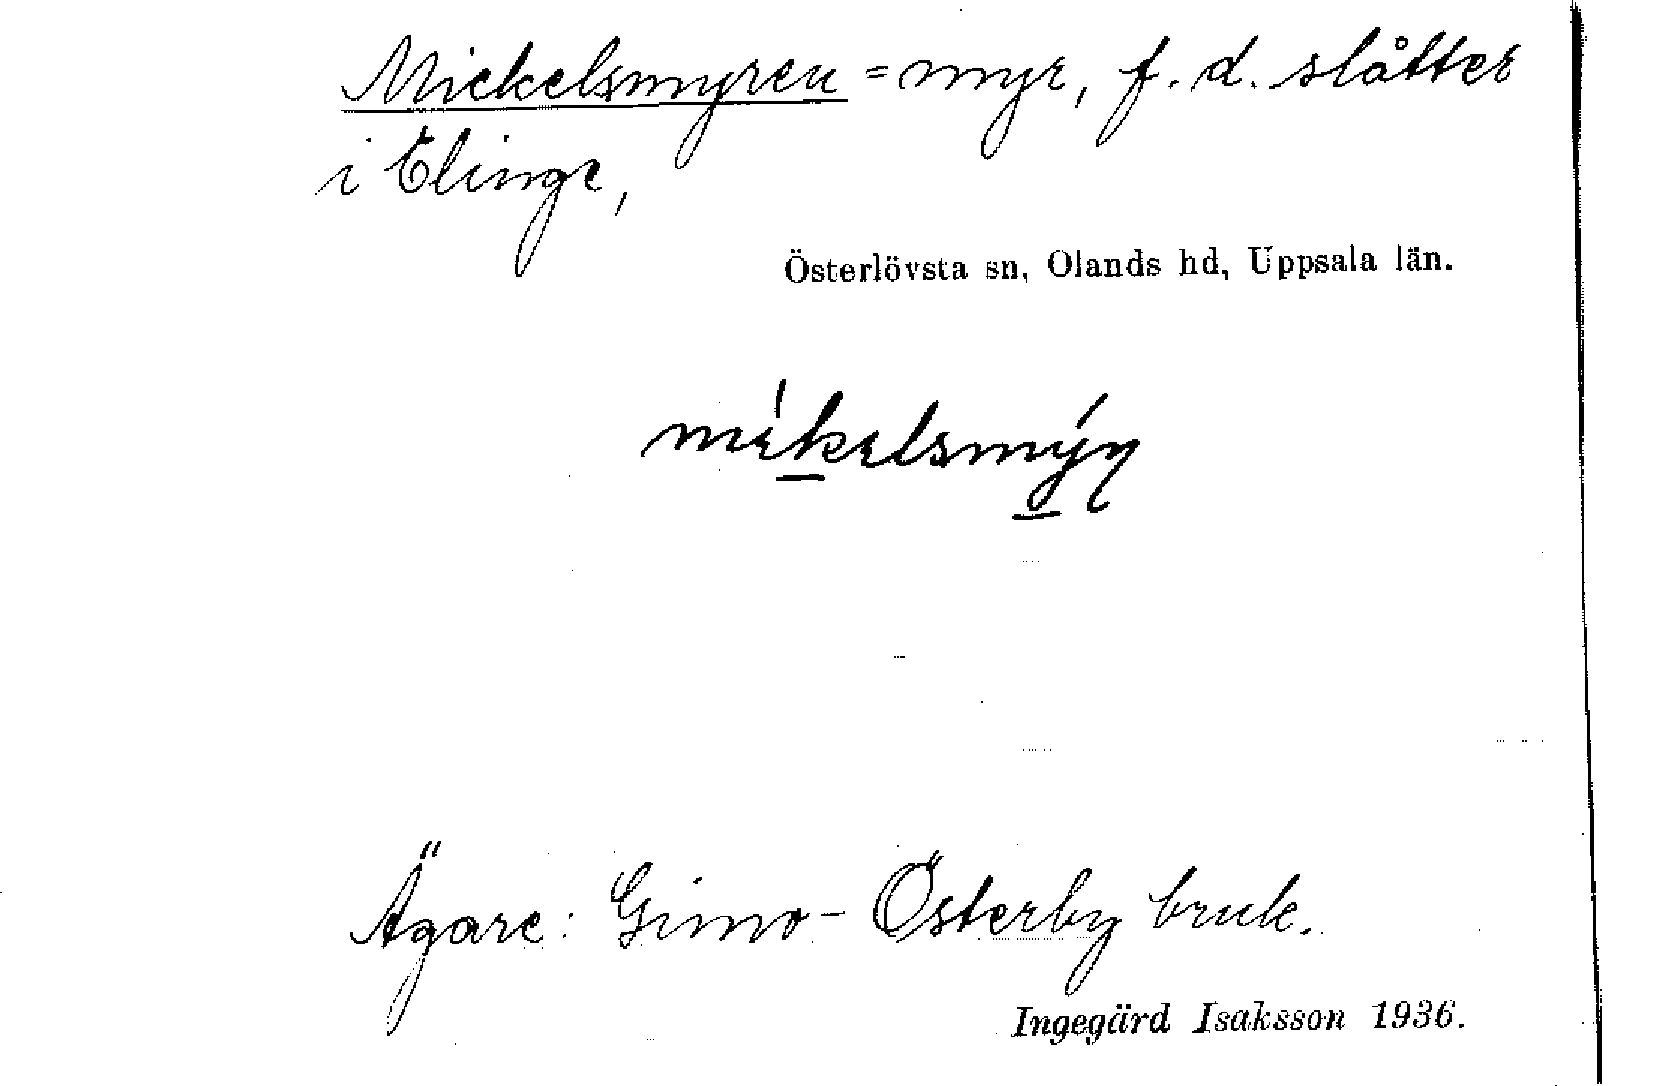 Mickelsmyren = myr, f. d. slåtter
i Elinge,
Österlövsta sn, Olands hd, Uppsala län.
mɩ́kɩlsmýɳ
Ägare: Gimo-Österby bruk.
Ingegärd Isaksson 1936.